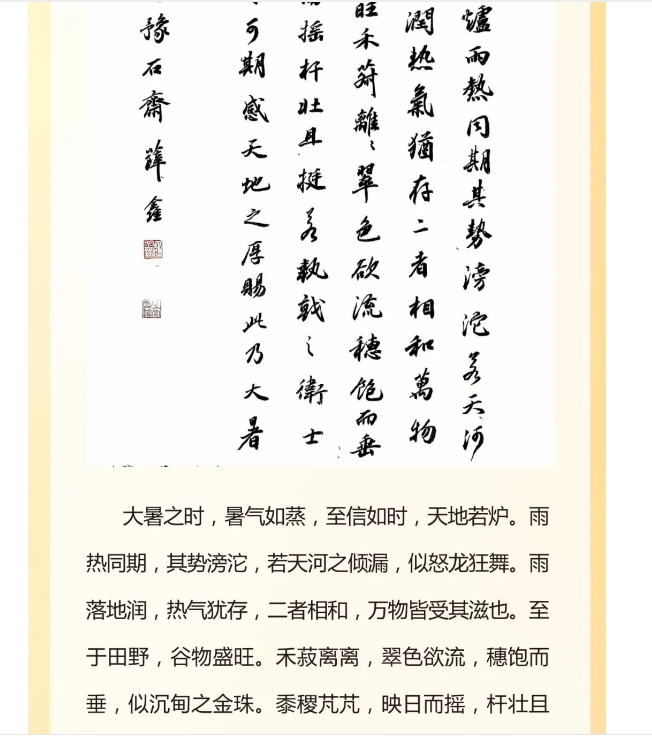 爐雨熱同期其勢滂沱若天河
潤熱氣猶存二者相和萬物
旺禾菽離離翠色欲流穗飽而垂
搖杆壯且挺若執戟之衛士
可期感天地之厚賜此乃大暑
豫石齋薛鑫
大暑之时，暑气如蒸，至信如时，天地若炉。雨
热同期，其势滂沱，若天河之倾漏，似怒龙狂舞。雨
落地润，热气犹存，二者相和，万物皆受其滋也。至
于田野，谷物盛旺。禾菽离离，翠色欲流，穗饱而
垂，似沉甸之金珠。黍稷芃芃，映日而摇，杆壮且